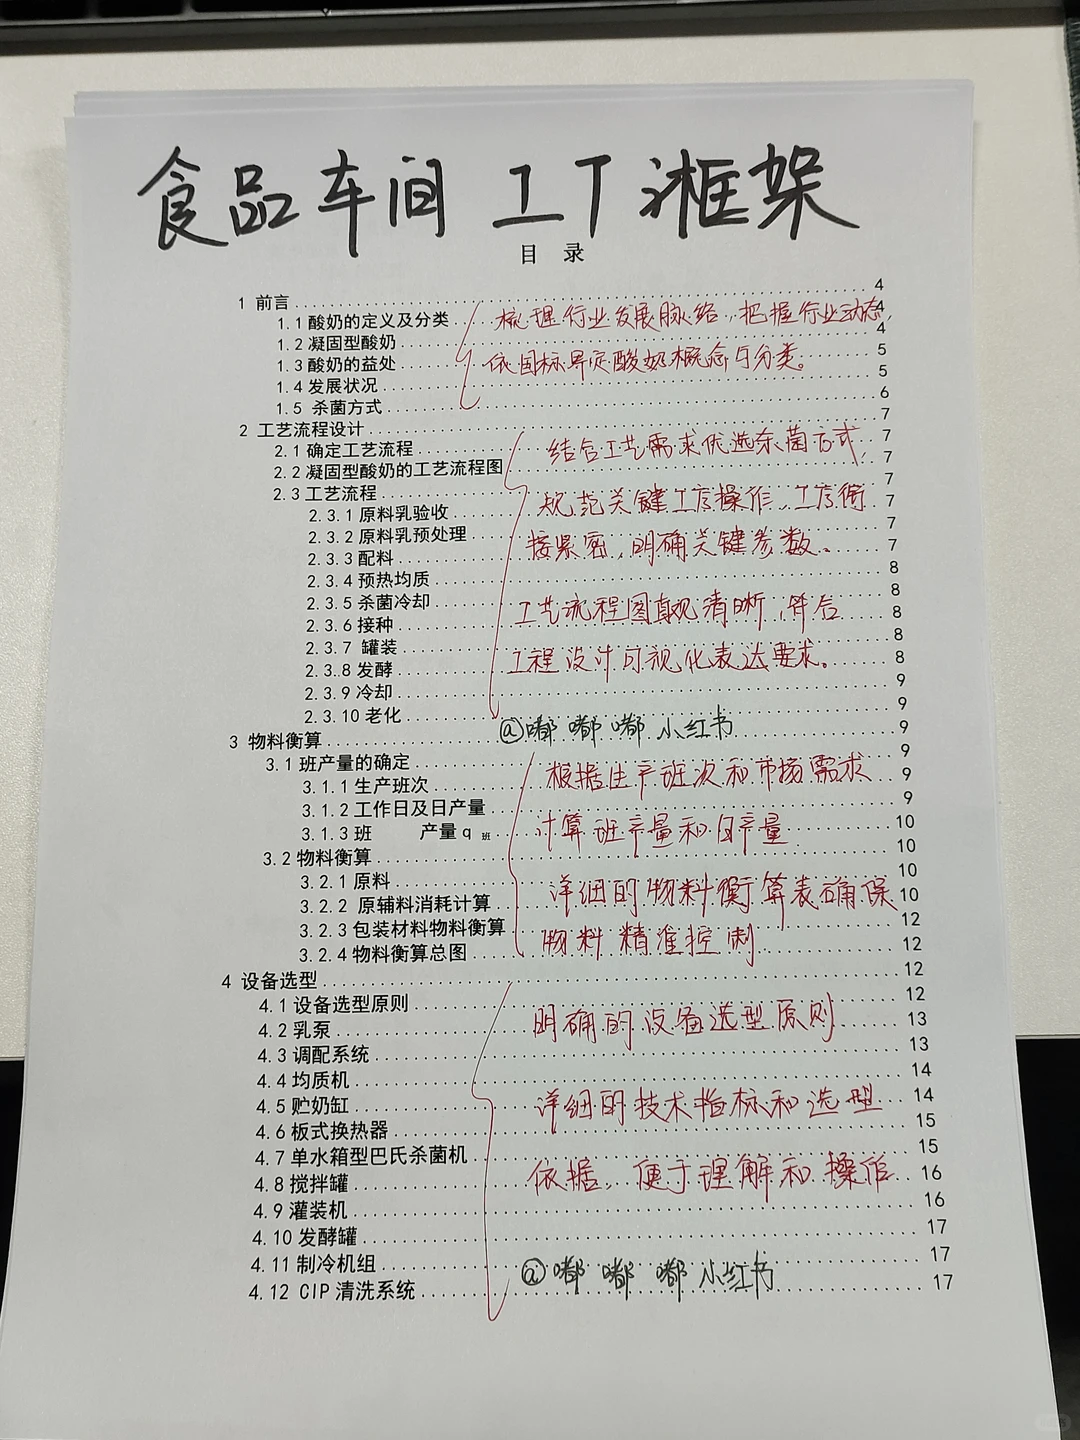 食品车间 工厂框架
目 录
1 前言 4
1.1 酸奶的定义及分类 4
梳理行业发展脉络,把握行业动态,
1.2 凝固型酸奶 4
1.3 酸奶的益处 5
依国标界定酸奶概念与分类。
1.4 发展状况 5
1.5 杀菌方式 6
2 工艺流程设计 7
2.1 确定工艺流程 7
结合工艺需求优选杀菌方式,
2.2 凝固型酸奶的工艺流程图 7
2.3 工艺流程 7
规范关键工序操作,工序衔
2.3.1 原料乳验收 7
2.3.2 原料乳预处理 7
接紧密,明确关键参数。
2.3.3 配料 7
2.3.4 预热均质 8
2.3.5 杀菌冷却 8
工艺流程图直观清晰,符合
2.3.6 接种 8
2.3.7 罐装 8
工程设计可视化表达要求。
2.3.8 发酵 8
2.3.9 冷却 9
2.3.10 老化 9
@嘟嘟嘟 小红书
3 物料衡算 9
3.1 班产量的确定 9
根据生产班次和市场需求
3.1.1 生产班次 9
3.1.2 工作日及日产量 9
计算班产量和日产量
3.1.3 班 产量 q 班 10
3.2 物料衡算 10
3.2.1 原料 10
详细的物料衡算表确保
3.2.2 原辅料消耗计算 10
3.2.3 包装材料物料衡算 12
物料精准控制
3.2.4 物料衡算总图 12
4 设备选型 12
4.1 设备选型原则 12
明确的设备选型原则
4.2 乳泵 13
4.3 调配系统 13
4.4 均质机 14
4.5 贮奶缸 14
详细的技术指标和选型
4.6 板式换热器 15
4.7 单水箱型巴氏杀菌机 15
依据,便于理解和操作
4.8 搅拌罐 16
4.9 灌装机 16
4.10 发酵罐 17
4.11 制冷机组 17
@嘟嘟嘟 小红书
4.12 CIP 清洗系统 17